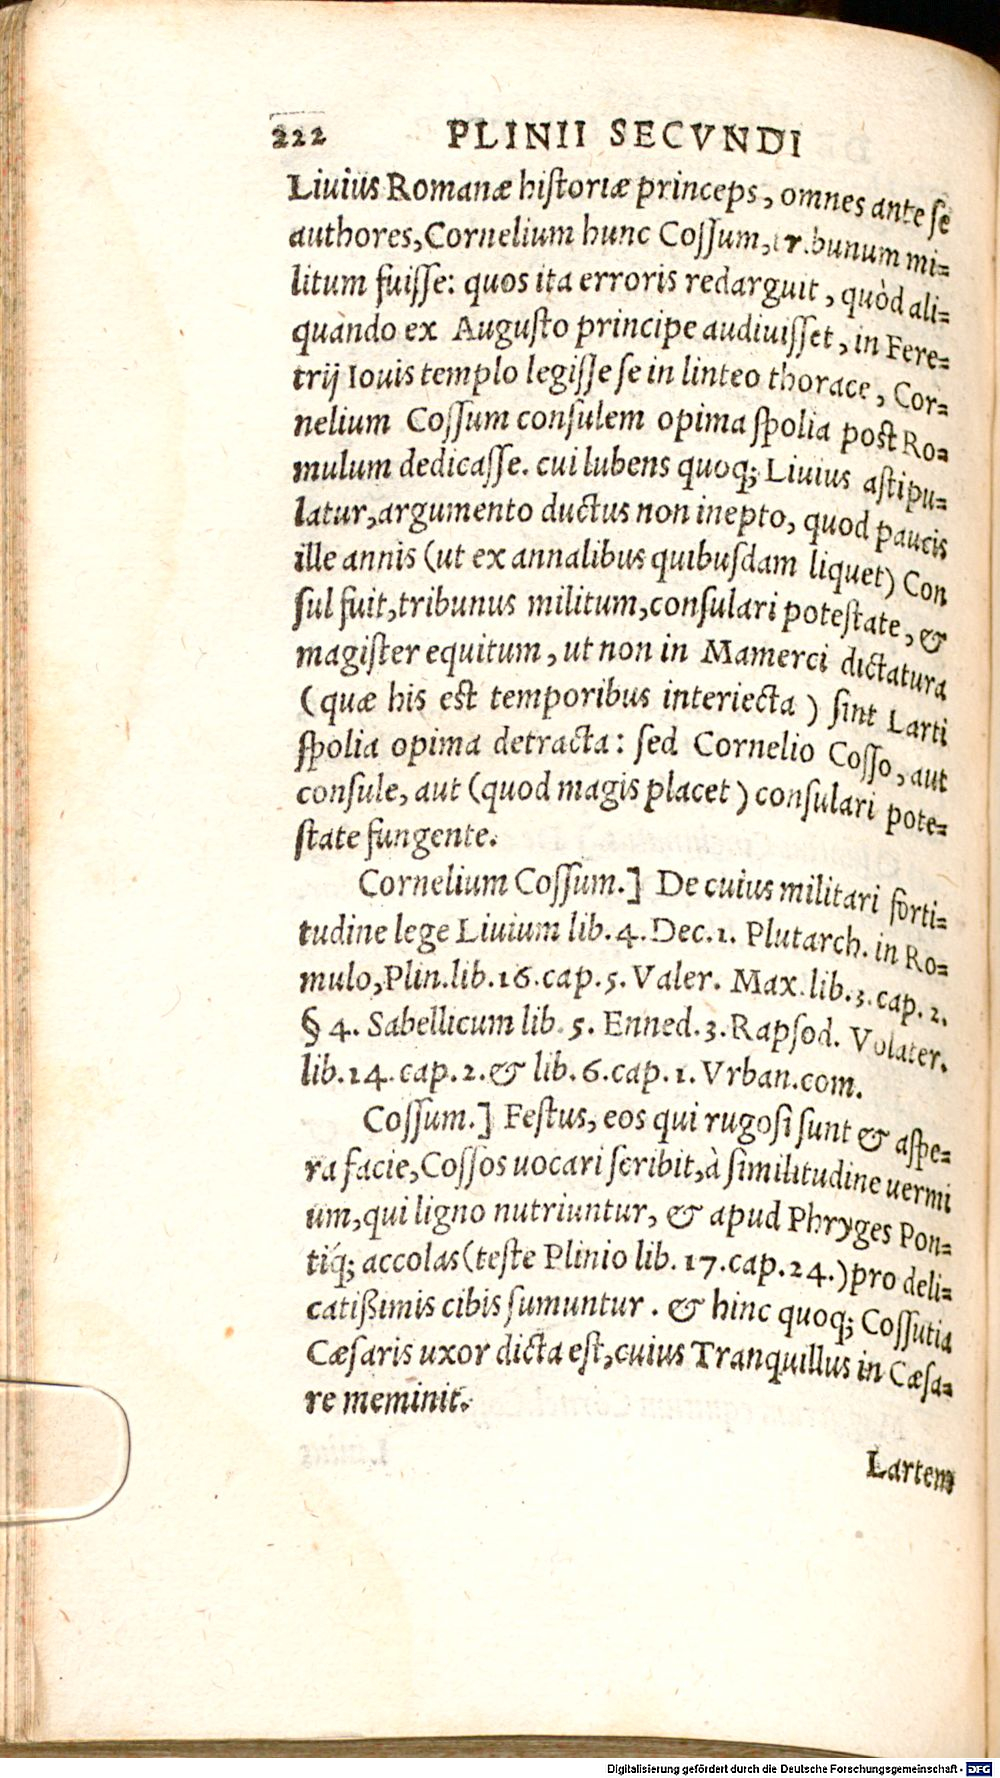 222 PLINII SECVNDI
Liuius Romanæ historiæ princeps, omnes ante se
authores, Cornelium hunc Cossum, tr.bunum mi-
litum fuisse: quos ita erroris redarguit, quòd ali-
quando ex Augusto principe audiuisset, in Fere-
trij Iouis templo legisse se in linteo thorace, Cor-
nelium Cossum consulem opima spolia post Ro-
mulum dedicasse. cui lubens quoq; Liuius astipu-
latur, argumento ductus non inepto, quod paucis
ille annis (ut ex annalibus quibusdam liquet) Con
sul fuit, tribunus militum, consulari potestate, &
magister equitum, ut non in Mamerci dictatura
(quæ his est temporibus interiecta) sint Larti
spolia opima detracta: sed Cornelio Cosso, aut
consule, aut (quod magis placet) consulari pote-
state fungente.
Cornelium Cossum.] De cuius militari forti-
tudine lege Liuium lib. 4. Dec. 1. Plutarch. in Ro-
mulo, Plin. lib. 16. cap. 5. Valer. Max. lib. 3. cap. 2.
§ 4. Sabellicum lib. 5. Enned. 3. Rapsod. Volater.
lib. 14. cap. 2. & lib. 6. cap. 1. Vrban. com.
Cossum.] Festus, eos qui rugosi sunt & aspe-
ra facie, Cossos uocari scribit, à similitudine uermi
um, qui ligno nutriuntur, & apud Phryges Pon-
tiq́; accolas (teste Plinio lib. 17. cap. 24.) pro deli-
catißimis cibis sumuntur. & hinc quoq; Cossutia
Cæsaris uxor dicta est, cuius Tranquillus in Cæsa-
re meminit.
Lartem
Digitalisierung gefördert durch die Deutsche Forschungsgemeinschaft - DFG